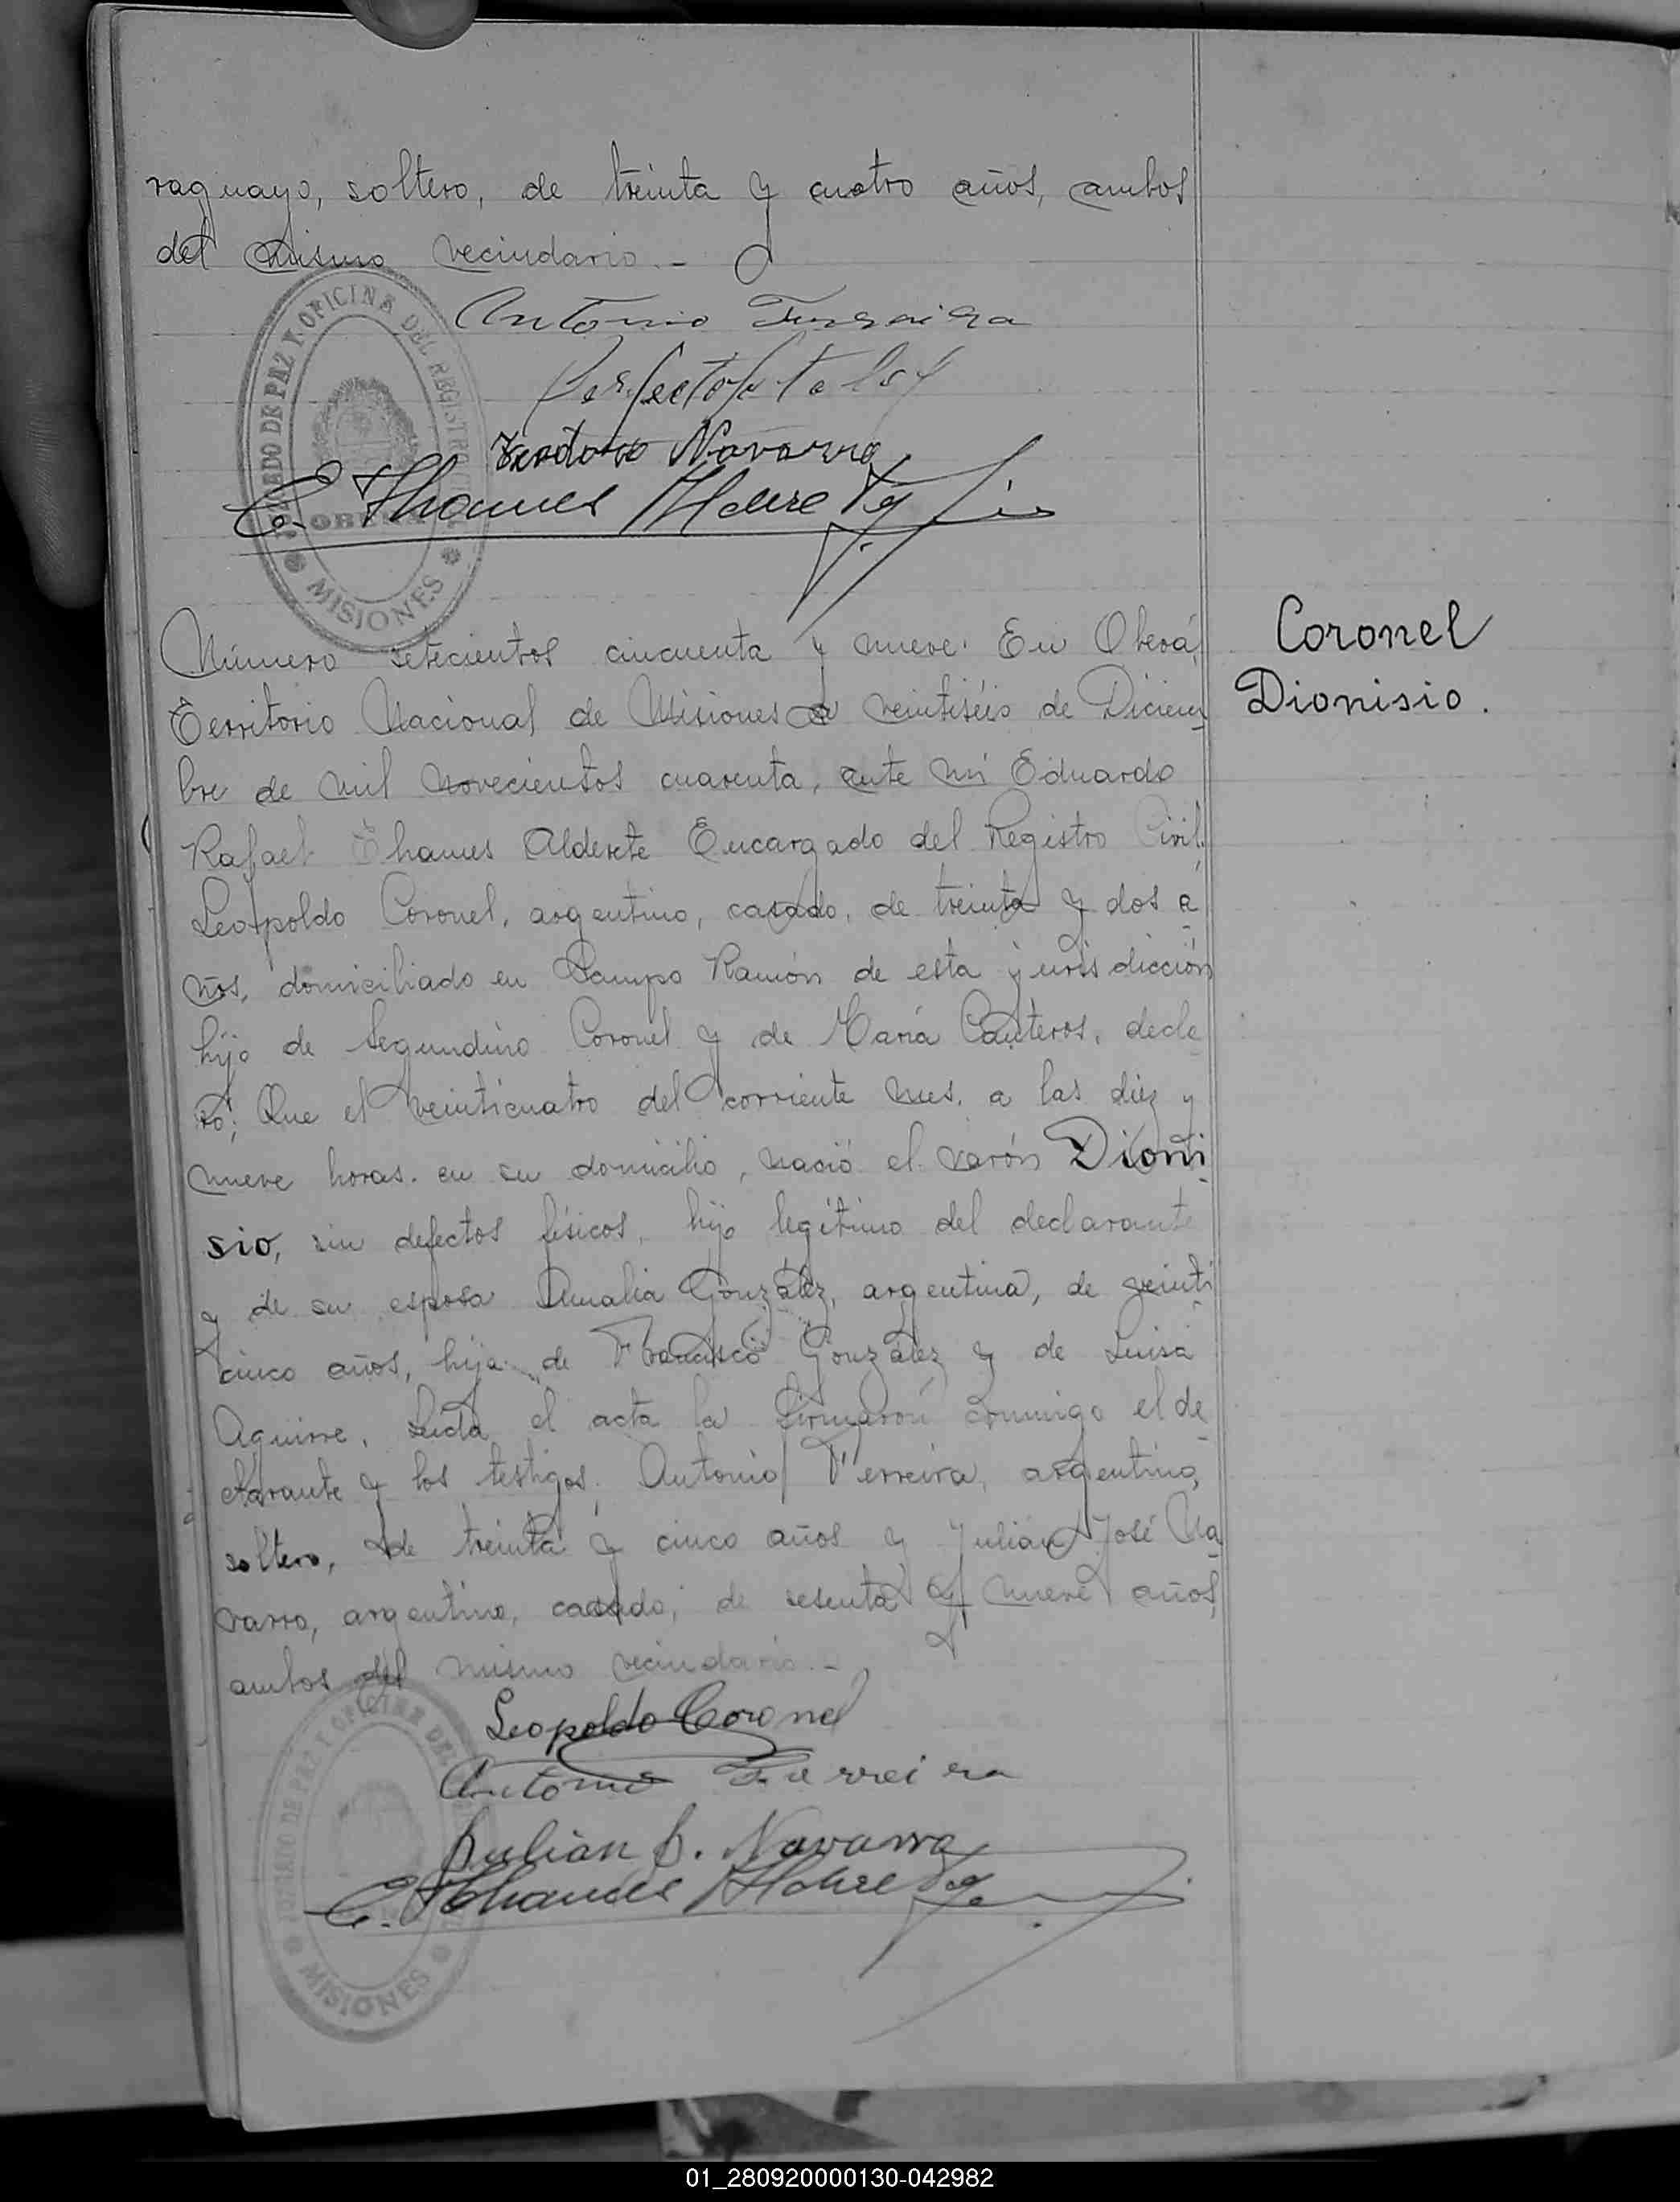 raguayo, soltero, de treinta y cuatro años, ambos
del mismo vecindario.-
Antonio Ferreira
Navarro
E. Thames Alderete
JUZGADO DE PAZ Y OFICINA DEL REGISTRO CIVIL
OBERÁ
MISIONES
Coronel
Dionisio.
Número setecientos cincuenta y nueve. En Oberá,
Territorio Nacional de Misiones a veintiséis de Diciem
bre de mil novecientos cuarenta, ante mí Eduardo
Rafael Thames Alderete Encargado del Registro Civil.
Leopoldo Coronel, argentino, casado, de treinta y dos a
ños, domiciliado en Campo Ramón de esta jurisdicción
hijo de Segundino Coronel y de María Cauteros, decla
ró; Que el veinticuatro del corriente mes. a las diez y
nueve horas. en su domicilio, nació el varón Dioni
sio, sin defectos físicos, hijo legítimo del declarante
y de su esposa Amalia González, argentina, de veinti
cinco años, hija de Francisco González y de Luisa
Aguirre, Leída el acta la firmaron conmigo el de
clarante y los testigos. Antonio Ferreira, argentino,
soltero, de treinta y cinco años y Julián José Na
varro, argentino, casado, de sesenta y nueve años,
ambos del mismo vecindario.-
Leopoldo Coronel
Antonio Ferreira
Julian J. Navarro
E. Thames Alderete
JUZGADO DE PAZ Y OFICINA DEL
MISIONES
01_280920000130-042982